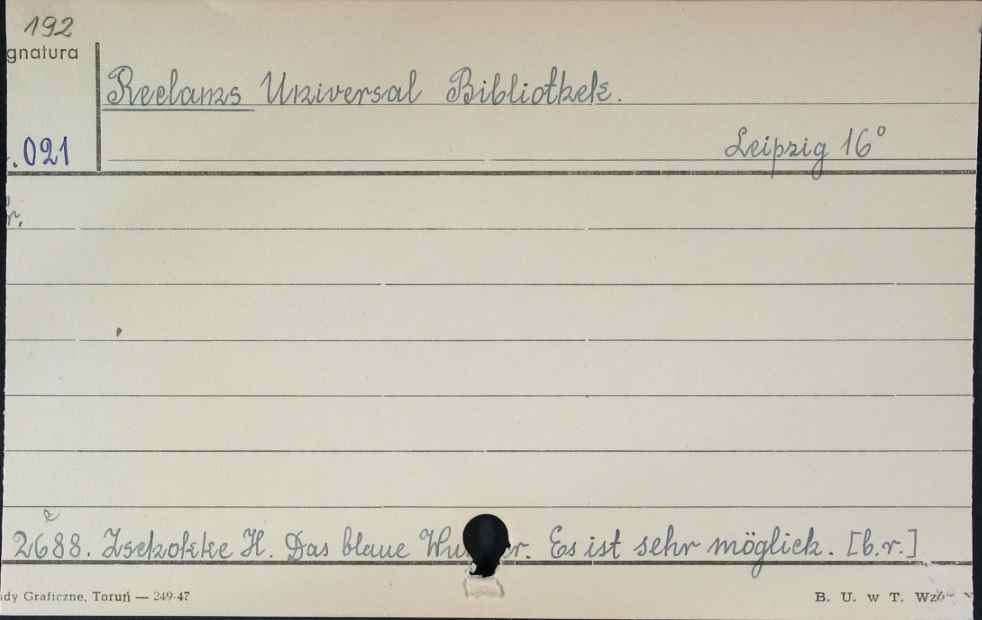 192
gnatura
Reclams Universal Bibliothek.
.021
Leipzig 16°
r.
2688. Zschokke H. Das blaue Wu er. Es ist sehr möglich. [b.r.]
dy Graficzne, Toruń — 249-47
B. U. w T. Wzó